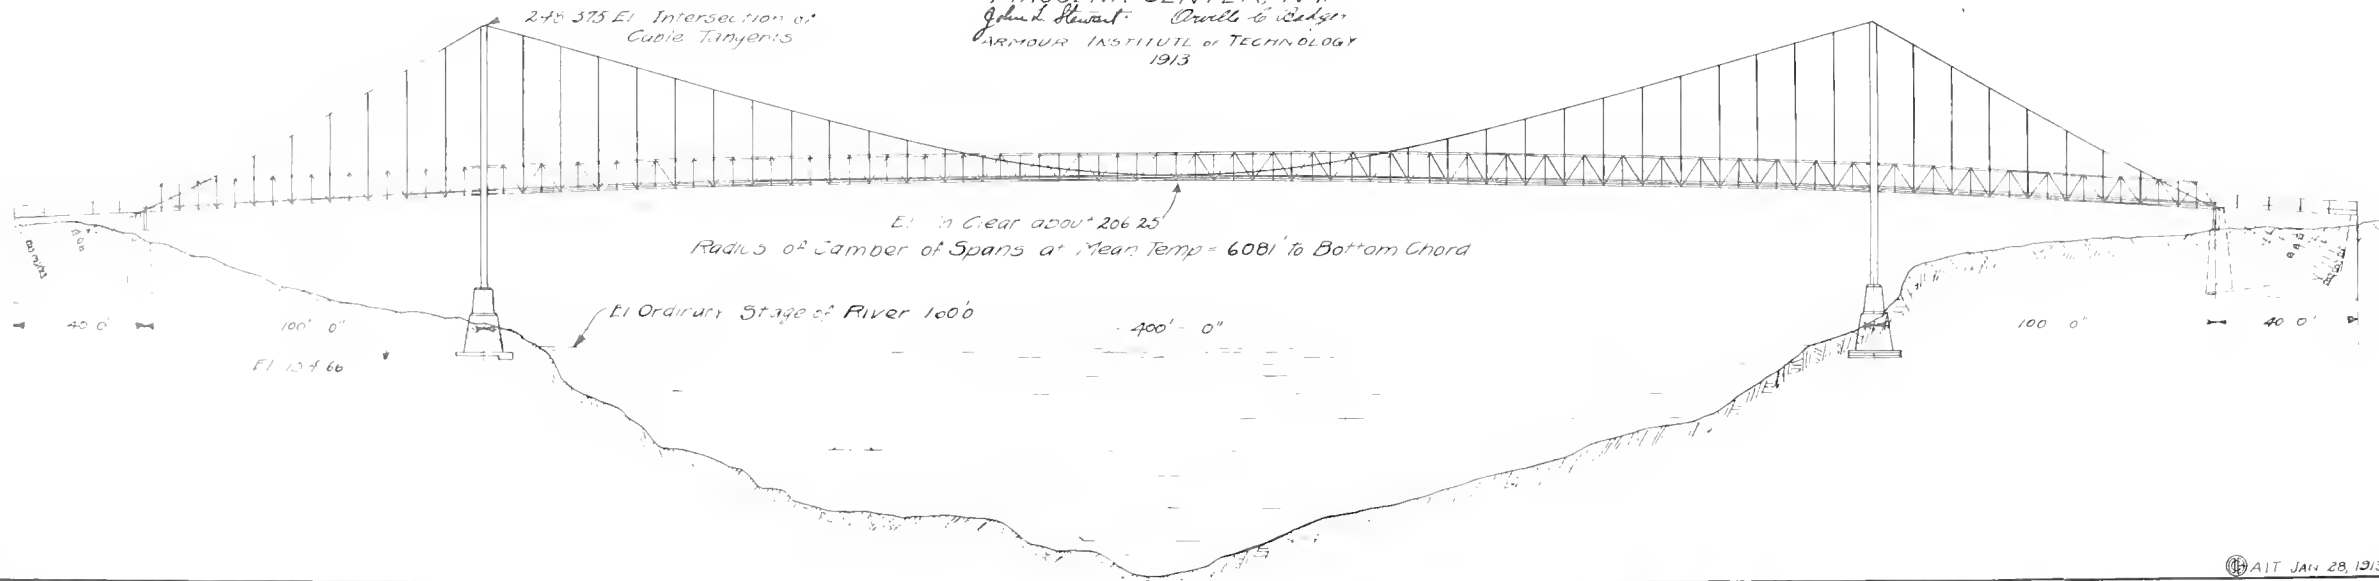 248 375 El Intersection of
Cable Tangents
MASSENA CENTER, N.Y.
John L. Stewart. Orville C Badger
ARMOUR INSTITUTE of TECHNOLOGY
1913
El in Clear about 206 25
Radius of Camber of Spans at Mean Temp = 6081' to Bottom Chord
El Ordinary Stage of River 160'0
40 0'
100' 0"
400' - 0"
100 0"
40 0'
El 66
AIT JAN 28, 1913